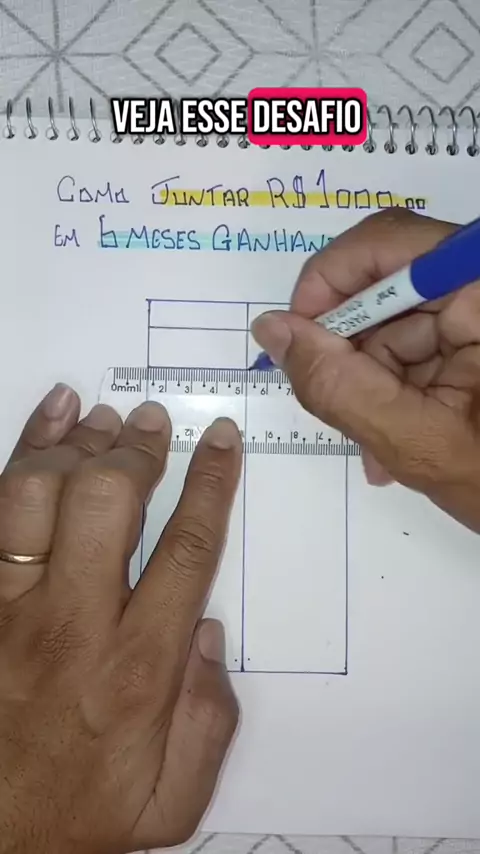 VEJA ESSE DESAFIO
COMO JUNTAR R$1000,00
EM 6 MESES GANHAN
0mm1 2 3 4 5 6 7